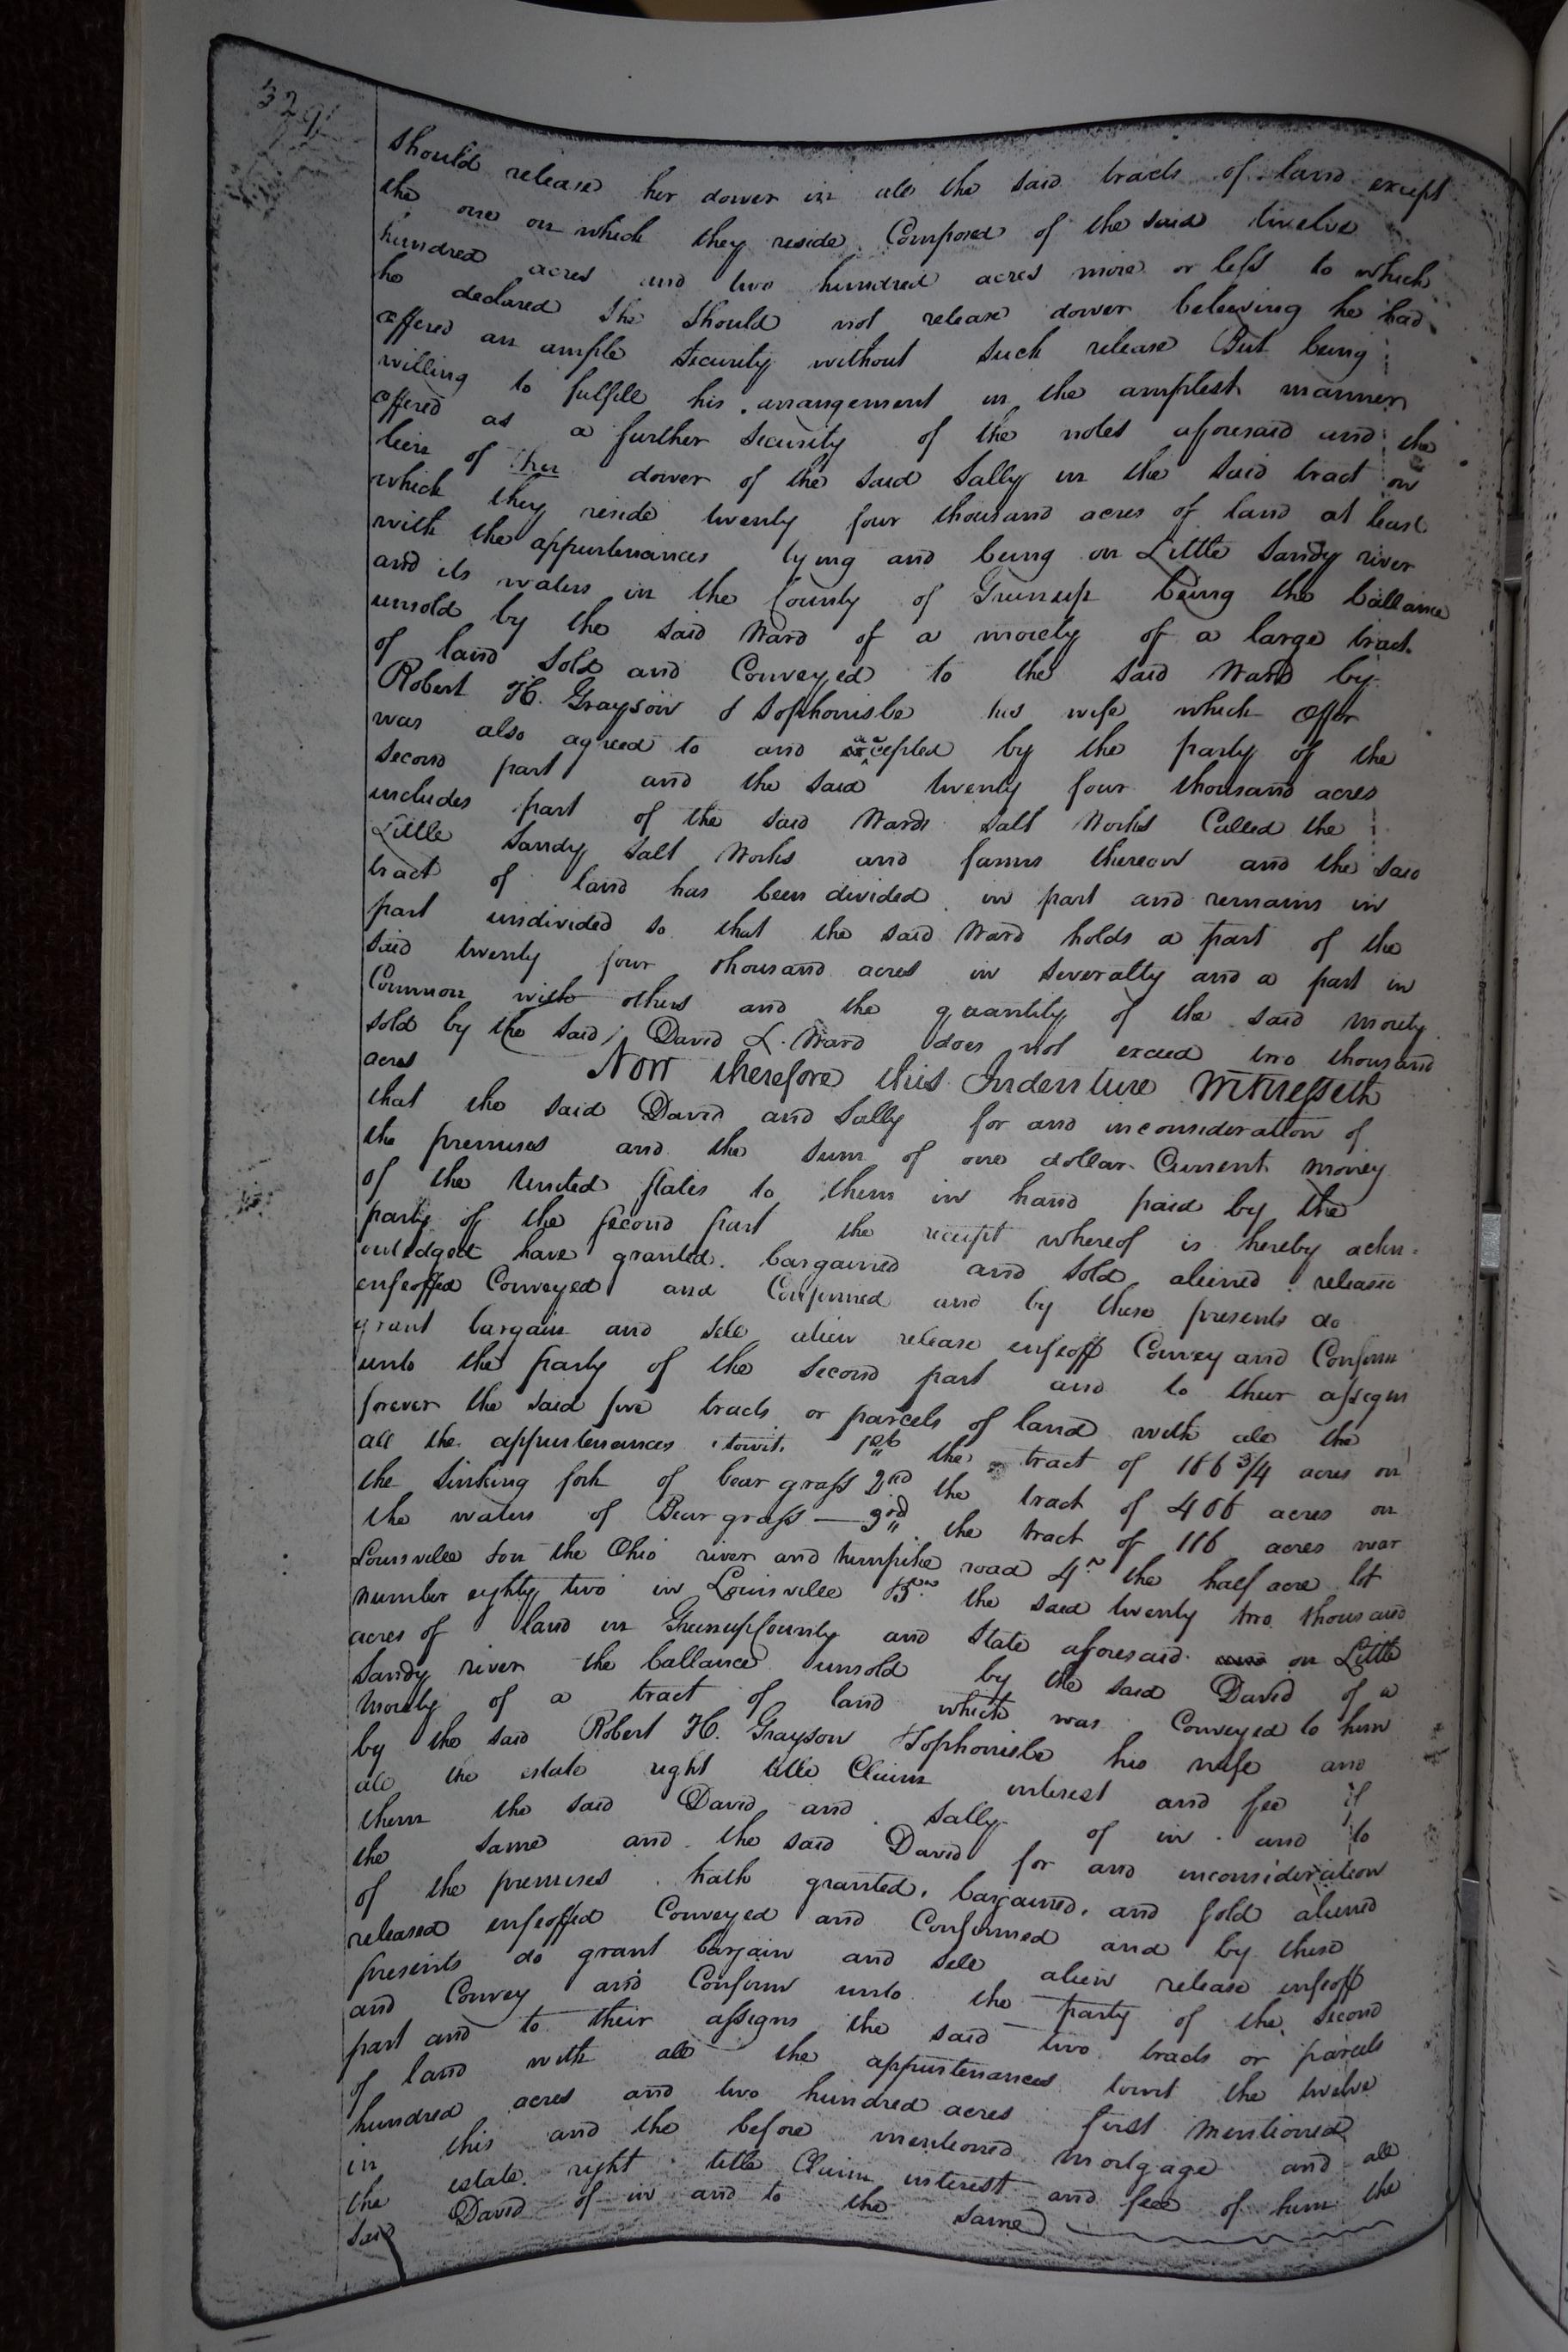 329
should release her dower in all the said tracts of land except
the one on which they reside Composed of the said twelve
hundred acres and two hundred acres more or less to which
he declared she should not release dower beleeving he had
offered an ample security without such release But being
willing to fulfill his arrangement in the amplest manner
offered as a further security of the notes aforesaid and the
lien of her dower of the said Sally in the said tract on
which they reside twenty four thousand acres of land at least
with the appurtenances lying and being on Little Sandy river
and its waters in the County of Greenup being the ballance
unsold by the said Ward of a moiety of a large tract
of land sold and Conveyed to the said Ward by
Robert H. Grayson & Sophonisbe his wife which offer
was also agreed to and accepted by the party of the
second part and the said twenty four thousand acres
includes part of the said Wards salt Works Called the
Little Sandy Salt Works and farms thereon and the said
tract of land has been divided in part and remains in
part undivided so that the said Ward holds a part of the
said twenty four thousand acres in severalty and a part in
Common with others and the quantity of the said moiety
sold by the said David L. Ward does not exceed two thousand
acres Now therefore this Indenture Witnesseth
that the said David and Sally for and inconsideration of
the premises and the sum of one dollar Current money
of the United States to them in hand paid by the
party of the second part the receipt whereof is hereby ackn-
owledged have granted. bargained and sold aliened released
enfeoffed Conveyed and Confirmed and by these presents do
grant bargain and sell alien release enfeoff Convey and Confirm
unto the party of the second part and to their assigns
forever the said five tracts or parcels of land with all the
all the appurtenances towit. 1st the tract of 186 3/4 acres on
the Sinking fork of bear grass 2nd the tract of 406 acres on
the waters of Bear grass — 3rd the tract of 116 acres near
Louisville on the Ohio river and turnpike road 4th the half acre lot
number eighty two in Louisville 5th the said twenty two thousand
acres of land in Greenup County and State aforesaid on Little
Sandy river the ballance unsold by the said David of a
moiety of a tract of land which was Conveyed to him
by the said Robert H. Grayson & Sophonisbe his wife and
all the estate right title Claim interest and fee of
them the said David and Sally of in and to
the same and the said David for and inconsideration
of the premises hath granted, bargained, and sold aliened
released enfeoffed Conveyed and Confirmed and by these
presents do grant bargain and sell alien release enfeoff
and Convey and Confirm unto the party of the second
part and to their assigns the said two tracts or parcels
of land with all the appurtenances towit the twelve
hundred acres and two hundred acres first mentioned
in this and the before mentioned mortgage and all
the estate right title Claim interest and fee of him the
said David of in and to the same